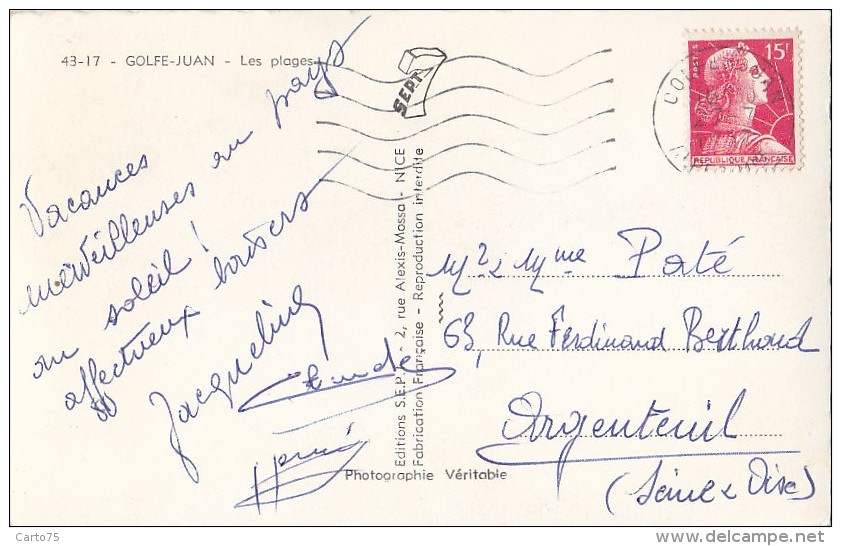 43-17 - GOLFE-JUAN - Les plages
SEPT
POSTES
15F
REPUBLIQUE FRANÇAISE
Vacances
merveilleuses au pays
au soleil !
affectueux baisers
Jacqueline
Claude
Editions S.E.P.T. - 2, rue Alexis-Mossa - NICE
Fabrication Française - Reproduction interdite
Photographie Véritable
Mr & Mme Paté
63, Rue Ferdinand Berthoud
Argenteuil
(Seine & Oise)
Carto75
www.delcampe.net